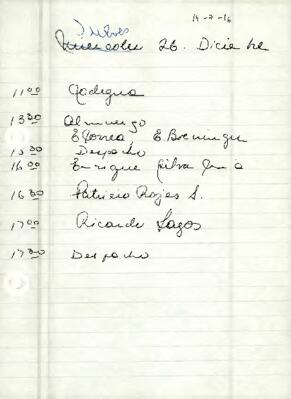 14-2-16
Jueves
Miercoles 26. Diciembre
11 00 Rodegua
13 30 Almuerzo
E Correa E. Boeninger
15 30 Despacho
16 00 Enrique Silva Cimma
16 30 Patricio Rojas S.
17 00 Ricardo Lagos
17 30 Despacho